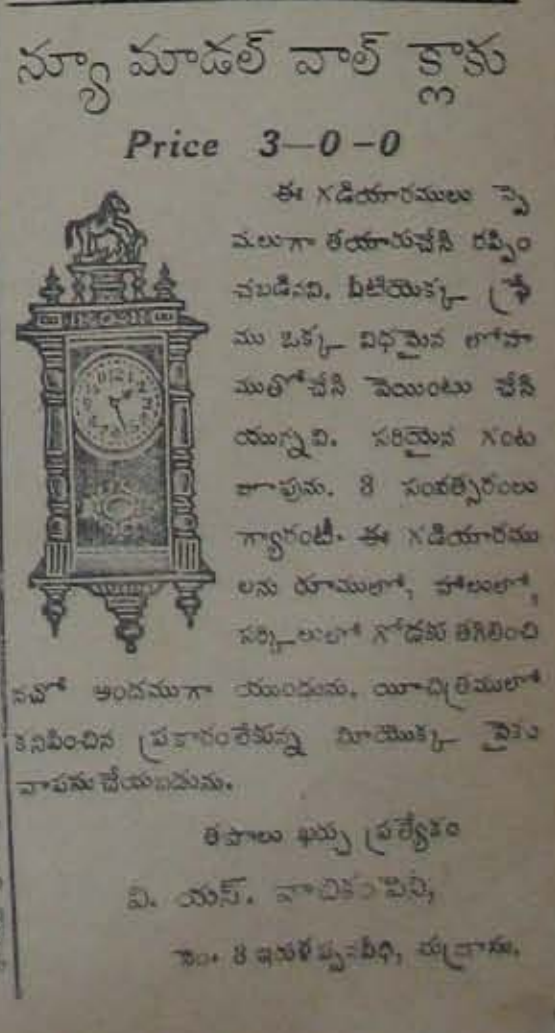 న్యూ మాడల్ వాల్ క్లాకు
Price 3—0—0
ఈ గడియారములు స్పె
షలుగా తయారుచేసి రప్పిం
చబడినవి. వీటియొక్క ఫ్రే
ము ఒక్క విధమైన లోహ
ముతోచేసి పెయింటు చేసి
యున్నవి. సరియైన గంట
చూపును. 3 సంవత్సరంలు
గ్యారంటీ. ఈ గడియారము
లను రూములో, హాలులో,
సర్కిలులో గోడకు తగిలించి
నచో అందముగా యుండును. యీచిత్రములో
కనిపించిన ప్రకారంలేకున్న మీయొక్క పైకం
వాపసు చేయబడును.
తపాలు ఖర్చు ప్రత్యేకం
వి. యస్. వాచికంపెని,
నెం. 3 ఇరుళప్పనవీధి, మద్రాసు.